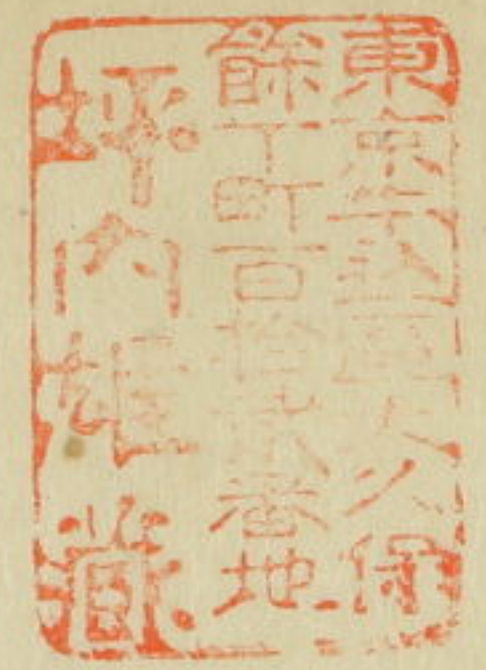 東京牛込區大久保
餘丁町百拾弐番地
坪内雄藏